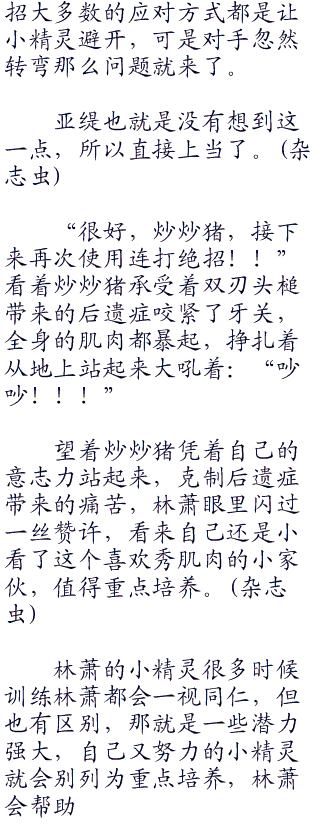 招大多数的应对方式都是让
小精灵避开，可是对手忽然
转弯那么问题就来了。
亚缇也就是没有想到这
一点，所以直接上当了。(杂
志虫)
“很好，炒炒猪，接下
来再次使用连打绝招！！”
看着炒炒猪承受着双刃头槌
带来的后遗症咬紧了牙关，
全身的肌肉都暴起，挣扎着
从地上站起来大吼着：“吵
吵！！！”
望着炒炒猪凭着自己的
意志力站起来，克制后遗症
带来的痛苦，林萧眼里闪过
一丝赞许，看来自己还是小
看了这个喜欢秀肌肉的小家
伙，值得重点培养。(杂志
虫)
林萧的小精灵很多时候
训练林萧都会一视同仁，但
也有区别，那就是一些潜力
强大，自己又努力的小精灵
就会别列为重点培养，林萧
会帮助